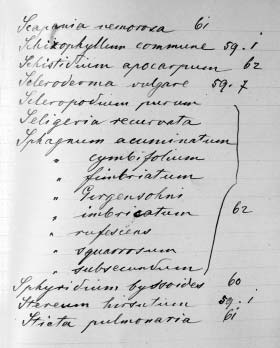 Scapania nemorosa 61
Schizophyllum commune 59.1
Schistidium apocarpum 62
Scleroderma vulgare 59.7
Scleropodium purum
Seligeria recurvata
Sphagnum acuminatum
" cymbifolium
" fimbriatum
" Girgensohni
" imbricatum 62
" rufescens
" squarrosum
" subsecundum
Sphyridium byssoides 60
Stereum hirsutum 59.1
Sticta pulmonaria 61